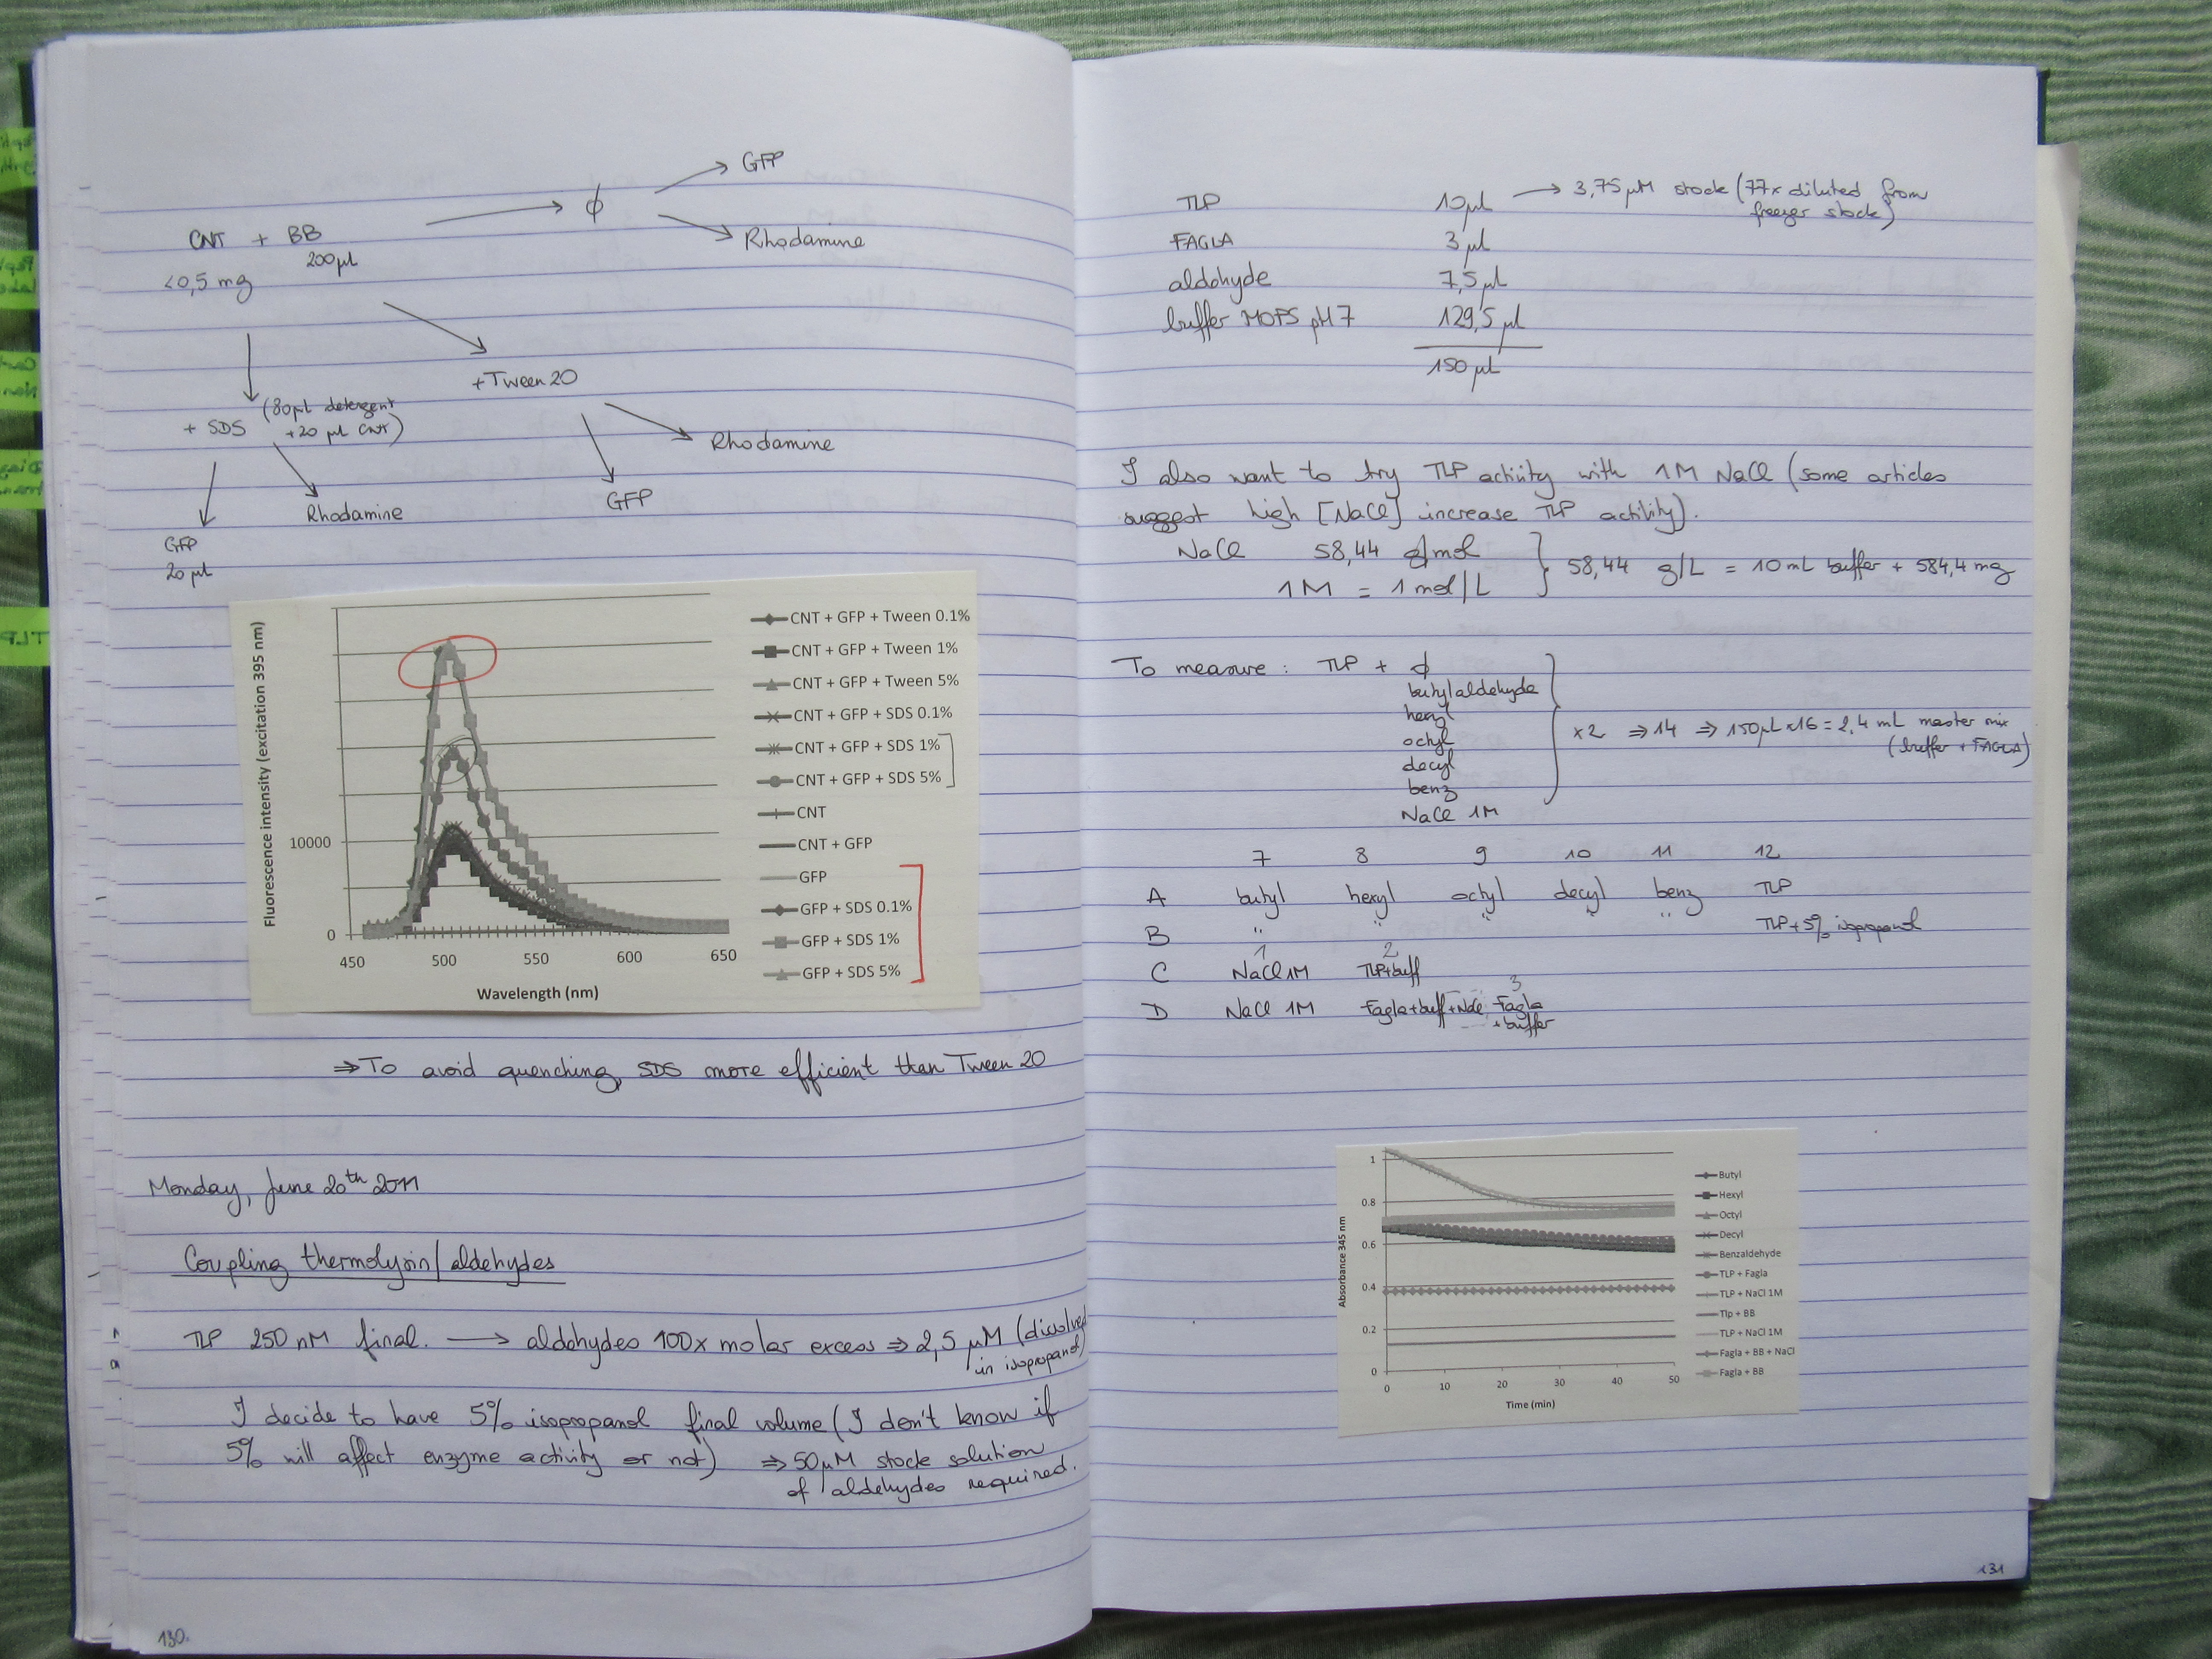 GFP
CNT + BB
200µl
<0,5 mg
ϕ
Rhodamine
+ Tween 20
+ SDS (80µl detergent
+20 µl CNT)
Rhodamine
GFP
Rhodamine
GFP
20 µl
Fluorescence intensity (excitation 395 nm)
10000
0
450 500 550 600 650
Wavelength (nm)
CNT + GFP + Tween 0.1%
CNT + GFP + Tween 1%
CNT + GFP + Tween 5%
CNT + GFP + SDS 0.1%
CNT + GFP + SDS 1%
CNT + GFP + SDS 5%
CNT
CNT + GFP
GFP
GFP + SDS 0.1%
GFP + SDS 1%
GFP + SDS 5%
⇒ To avoid quenching, SDS more efficient than Tween 20
Monday, June 20th 2011
Coupling thermolysin/aldehydes
TLP 250 nM final. → aldehydes 100x molar excess ⇒ 2,5 µM (dissolved
in isopropanol)
I decide to have 5% isopropanol final volume (I don't know if
5% will affect enzyme activity or not) ⇒ 50µM stock solution
of aldehydes required.
130.
TLP 10µl → 3,75µM stock (77x diluted from
freezer stock)
FAGLA 3 µl
aldehyde 7,5 µl
buffer MOPS pH 7 129,5 µl
150 µl
I also want to try TLP activity with 1M NaCl (some articles
suggest high [NaCl] increase TLP activity).
NaCl 58,44 g/mol
1M = 1 mol/L } 58,44 g/L = 10 mL buffer + 584,4 mg
To measure : TLP + ϕ
butylaldehyde
hexyl
octyl
decyl
benz
NaCl 1M
x2 ⇒ 14 ⇒ 150µL x16 = 2,4 mL master mix
(buffer + FAGLA)
7 8 9 10 11 12
A butyl hexyl octyl decyl benz TLP
B " " " " " TLP+5% isopropanol
1 2
C NaCl 1M TLP+buff
3
D NaCl 1M Fagla+buff+NaCl Fagla
+buffer
Absorbance 345 nm
1
0.8
0.6
0.4
0.2
0
0 10 20 30 40 50
Time (min)
Butyl
Hexyl
Octyl
Decyl
Benzaldehyde
TLP + Fagla
TLP + NaCl 1M
Tlp + BB
TLP + NaCl 1M
Fagla + BB + NaCl
Fagla + BB
131
TLP